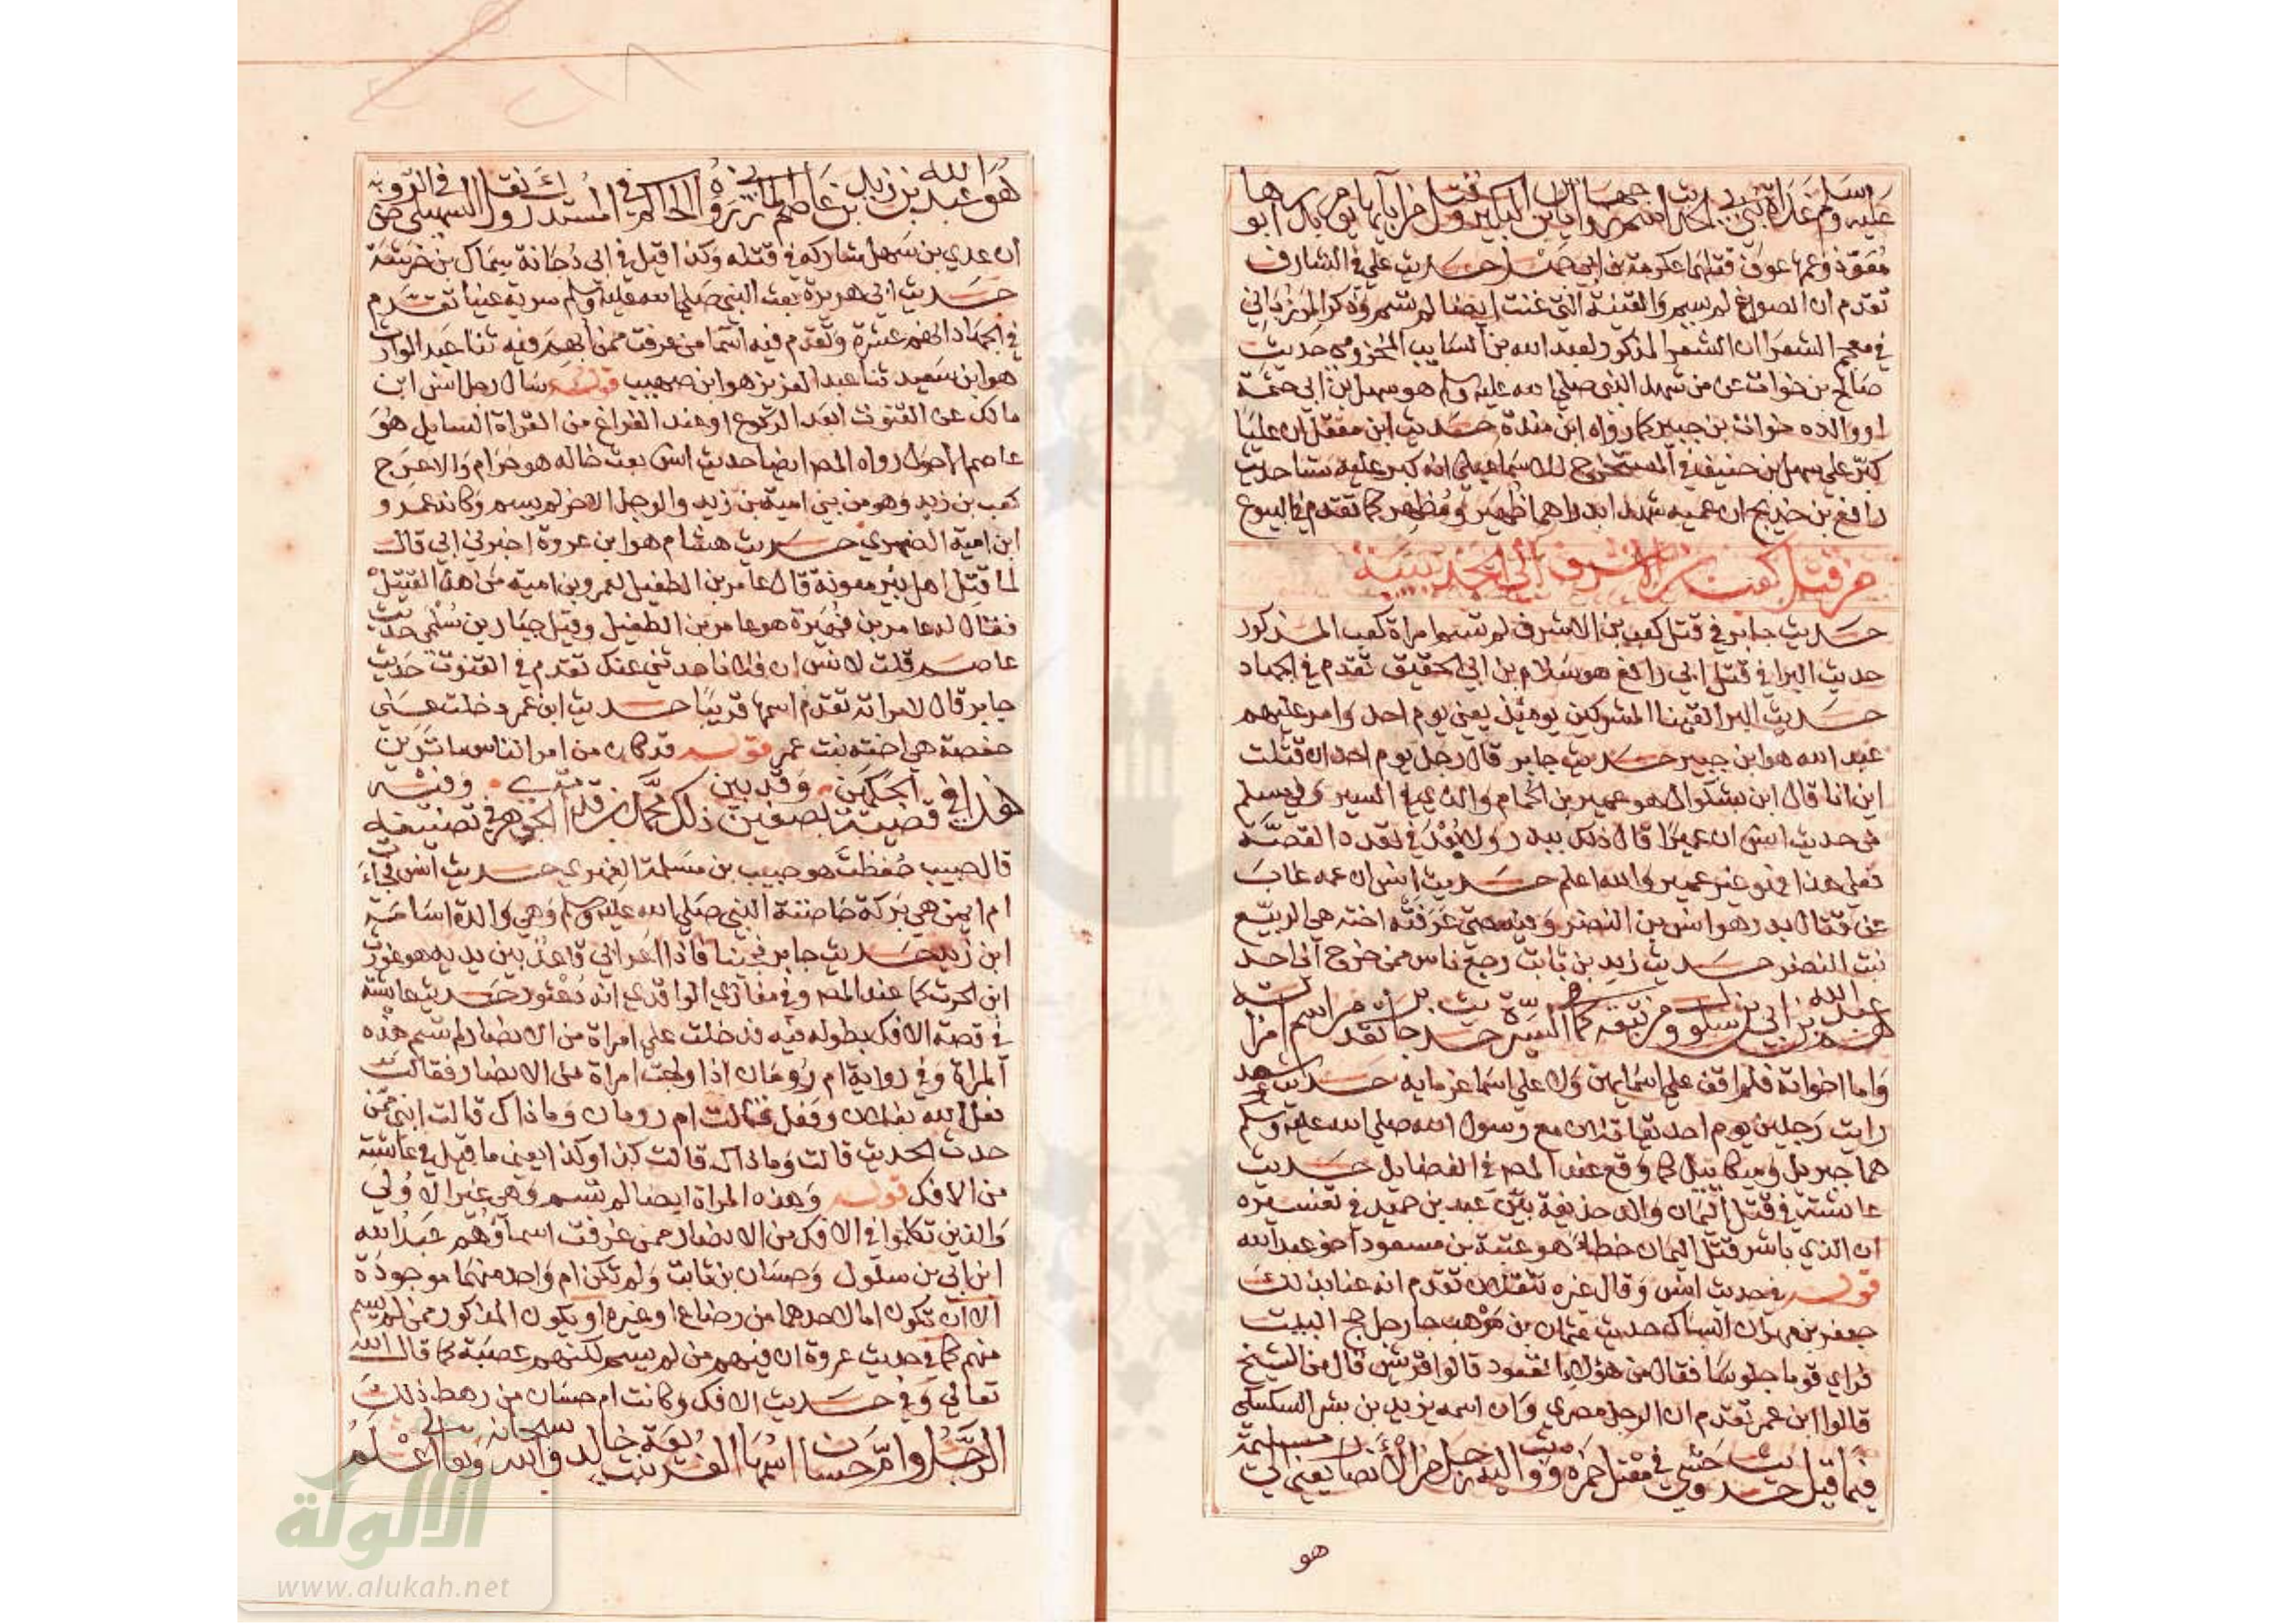 معوذ وعمها عوف قتلهما عكرمة بن ابي جهل حديث علي في الشارف
تقدم ان الصواغ لم يسم والقينة التي غنت ايضا لم تسم وذكر المرزباني
في معجم الشعرا ان الشعر المذكور لعبد الله بن السايب المخزومي حديث
صالح بن خوات عن من شهد النبي صلى الله عليه وسلم هو سهل بن ابي حثمة
او والده خوات بن جبير كما رواه ابن مندة حديث ابن معقل ان عليا
كبر على سهل بن حنيف في المستخرج للاسماعيلي انه كبر عليه ستا حديث
رافع بن خديج ان عميه شهدا بدرا هما ظهير ومظهر كما تقدم في البيوع
من قتل كعب بن الاشرف الى الحديبية
حديث جابر في قتل كعب بن الاشرف لم تسم امراة كعب المذكور
حديث البرا في قتل ابي رافع هو سلام بن ابي الحقيق تقدم في الجهاد
حديث البرا لقينا المشركين يومئذ يعني يوم احد وامر عليهم
عبد الله هو ابن جبير حديث جابر قال رجل يوم احد ان قتلت
اين انا قال ابن بشكوال هو عمير بن الحمام والذي في السير وفي مسلم
من حديث انس ان عميرا قال ذلك ببدر ولا بُعد في تعدد القصة
فعلى هذا فهو غير عمير والله اعلم حديث انس ان عمه غاب
عن قتال بدر هو انس بن النضر وفيه حتى عرفته اخته هي الربيع
بنت النضر حديث زيد بن ثابت رجع ناس ممن خرج الى احد
واما اخواته فلم اقف على اسمايهن ولا على اسما غرمايه حديث سعد
رايت رجلين يوم احد يقاتلان مع رسول الله صلى الله عليه وسلم
هما جبريل وميكائيل كما وقع عند المصر في الفضايل حديث
عائشة في قتل اليمان والد حذيفة بين عبد بن حميد في تفسيره
ان الذي باشر قتل اليمان خطا هو عتبة بن مسعود اخو عبد الله
قوله في حديث انس وقال غيره تنقلان تقدم انه عنا بذلك
جعفر بن مهران السباك حديث عثمان بن موهب جا رجل حج البيت
فراى قوما جلوسا فقال من هؤلاء القعود قالوا قريش قال من الشيخ
قالوا ابن عمر تقدم ان الرجل مصري وان اسمه يزيد بن بشر السكسكي
هو
ان عدي بن سهل شاركه في قتله وكذا قيل في ابي دجانة سماك بن خرشة
حديث ابي هريرة بعث النبي صلى الله عليه وسلم سرية عينا تقدم
في الجهاد انهم عشرة وتقدم فيه اسما من عرفت ممن ابهم فيه ثنا عبد الوارث
هو ابن سعيد ثنا عبد العزيز هو ابن صهيب قوله سال رجل انس ابن
مالك عن القنوت ابعد الركوع او عند الفراغ من القراة السايل هو
عاصم الاحول رواه المصر ايضا حديث انس بعث خاله هو حرام والاعرج
كعب بن زيد وهو من بني امية بن زيد والرجل الاخر لم يسم وكان عمرو
ابن امية الضمري حديث هشام هو ابن عروة اخبرني ابي قال
لما قتل اهل بير معونة قال عامر بن الطفيل لعمرو بن امية من هذا القتيل
فقال له عامر بن فهيرة هو عامر بن الطفيل وقيل جبار بن سلمى حديث
عاصم قلت لانس ان فلانا حدثني عنك تقدم في القنوت حديث
جابر قال لامراته تقدم اسمها قريبا حديث ابن عمر دخلت على
حفصة هي اخته بنت عمر قوله قد كان من امر الناس ما ترين
قال حبيب حُفظت هو حبيب بن مسلمة الفهري حديث انس فجاءت
ام ايمن هي بركة حاضنة النبي صلى الله عليه وسلم وهي والدة اسامة
ابن زيد حديث جابر فجينا فاذا اعرابي قاعد بين يديه هو غورث
ابن الحرث كما عند المصر وفي مغازي الواقدي انه دعثور حديث عائشة
في قصة الافك بطوله فيه فدخلت علي امراة من الانصار لم تسم هذه
المراة وفي رواية ام رومان اذا ولجت امراة من الانصار فقالت
فعل الله بفلان وفعل فقالت ام رومان وماذاك قالت ابني ممن
حدث الحديث قالت وماذاك قالت كذا وكذا يعني ما قيل في عائشة
من الافك قوله وهذه المراة ايضا لم تسم وهي غير الاولى
والذين تكلموا في الافك من الانصار ممن عرفت اسماؤهم عبد الله
ابن ابي بن سلول وحسان بن ثابت ولم تكن ام واحد منهما موجودة
الا ان تكون اما لاحدهما من رضاع او غيره او يكون المذكور ممن لم يسم
منهم كما في حديث عروة ان فيهم من لم يسم لكنهم عصبة كما قال الله
تعالى وفي حديث الافك وكانت ام حسان من رهط ذلك
الالوكة
www.alukah.net